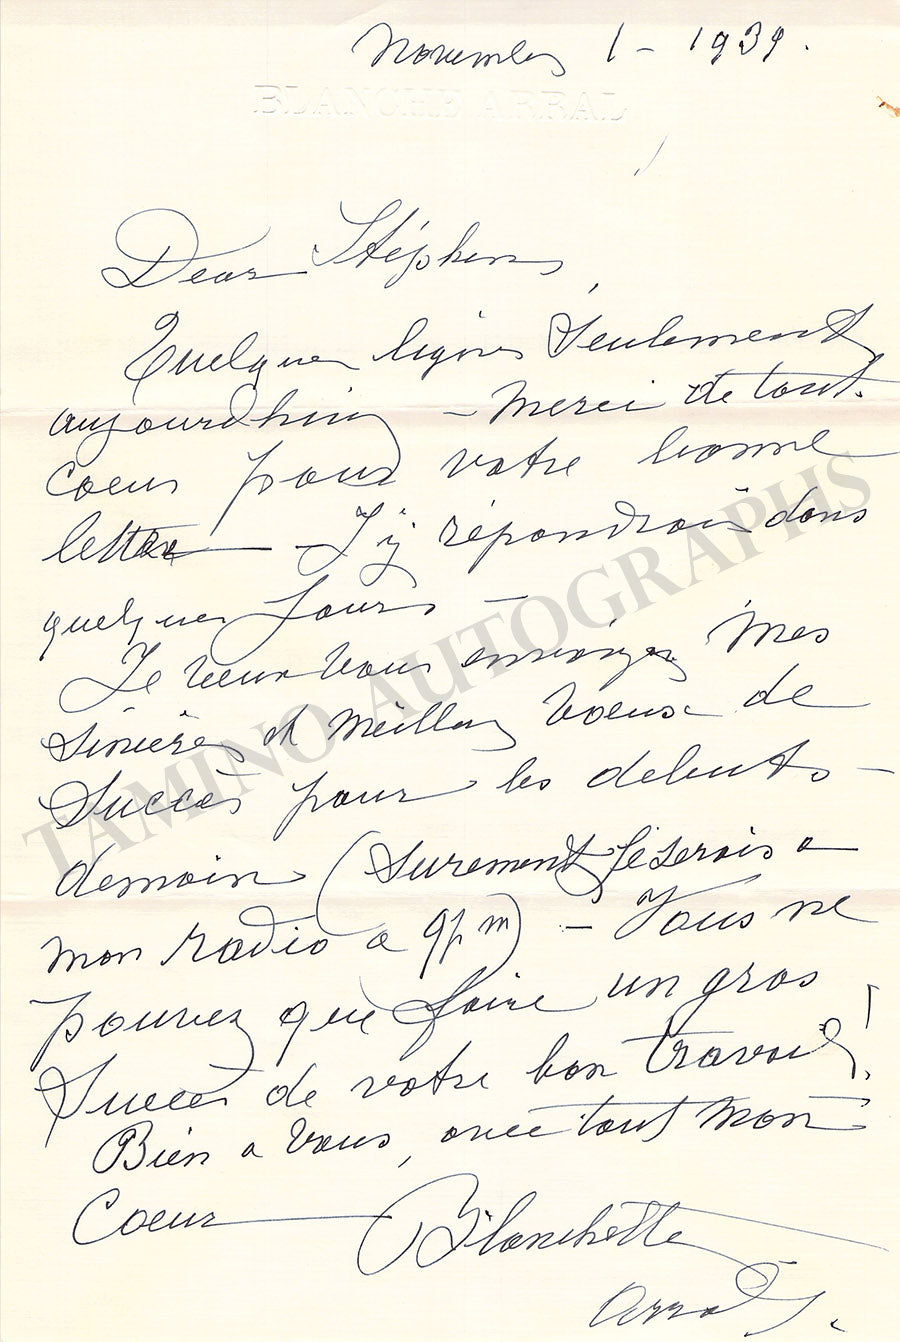 November 1 - 1939.
BLANCHE ARRAL
Dear Stéphen,
Quelques lignes seulement
aujourdhui - Merci de tout
coeur pour votre bonne
lettre - J'y répondrais dans
quelques jours -
Je veux vous envoyer mes
sincères et meilleurs voeux de
succès pour les debuts -
demain (surement je serais a
mon radio a 9 p m) - Vous ne
pouvez que faire un gros
succes de votre bon travail!
Bien a vous, avec tout mon
Coeur - Blanchette
Arral.
TAMINO AUTOGRAPHS